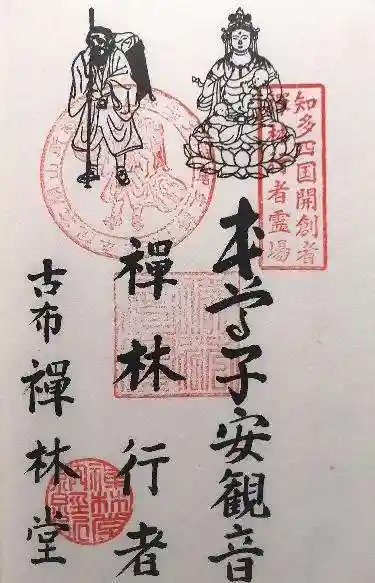 知多四国開創者
禅林行者霊場
本尊子安観音
禪林行者
古布禪林堂